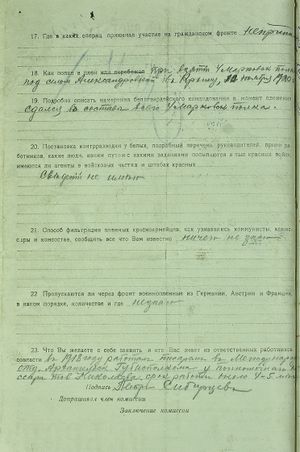 17. Где в каких операц. принимал участие на гражданском фронте
18. Как попал в плен или перебежал При взятии Марковск. полка
под селом Александровкой в Крыму, 12 ноября 1920 г.
19. Подробно описать намерения белогвардейского командования в момент
сдался в составе всего Марковск. полка.
20. Постановка контрразведки у белых, подробный перечень руководителей,
ботников, какие люди, каким путем с какими заданиями посылаются в тыл красных войск,
имеются ли агенты в войсковых частях и штабах красных
Сведений не имею
21. Способ фильтрации пленных красноармейцев, как узнавались коммунисты,
сары и комсостав, сообщить все что Вам известно ничего не знаю
22. Пропускаются ли через фронт военнопленные из Германии, Австрии и Франции,
в каком порядке, количестве и где не знаю
23. Что Вы желаете о себе заявить и кто Вас знает из ответственных работников
в 1918 году работал
работы около 4-5 мес
Подпись Петр Сибирцев
Допрашивал член комиссии
Заключение комиссии